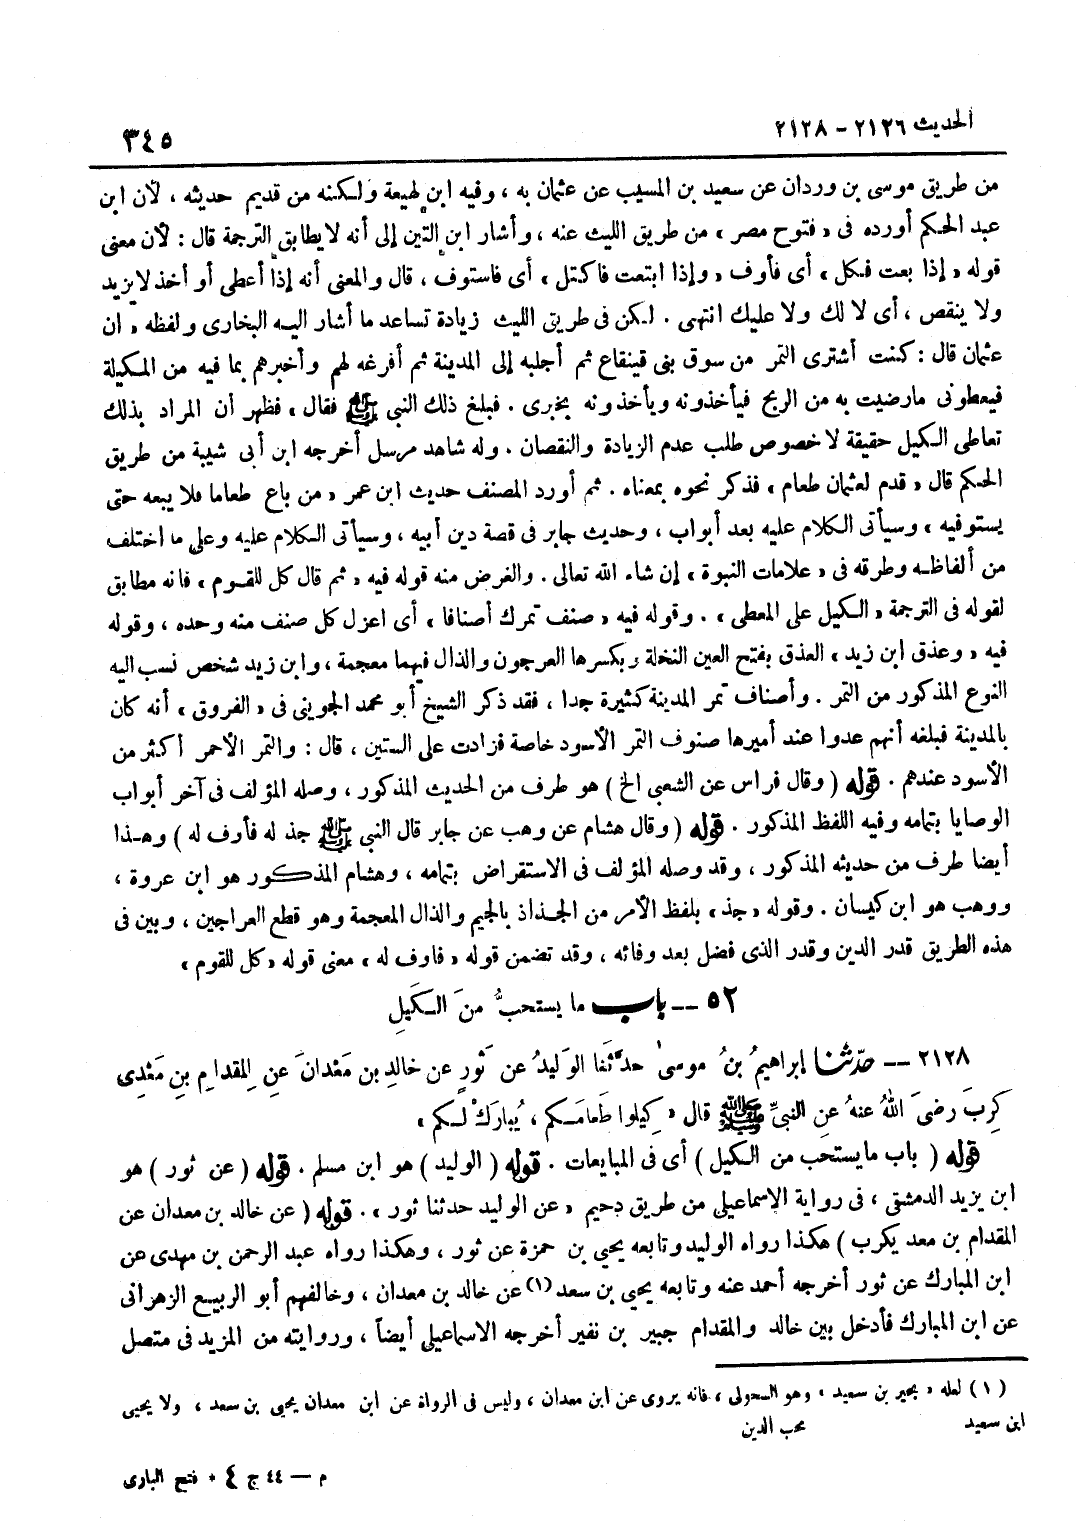 الحديث ٢١٢٦ - ٢١٢٨
٣٤٥
من طريق موسى بن وردان عن سعيد بن المسيب عن عثمان به ، وفيه ابن لهيعة ولكنه من قديم حديثه ، لأن ابن
عبد الحكم أورده فى « فتوح مصر » من طريق الليث عنه ، وأشار ابن التين إلى أنه لا يطابق الترجمة قال : لأن معنى
قوله « إذا بعت فكل » أى فأوف « وإذا ابتعت فاكتل » أى فاستوف ، قال والمعنى أنه إذا أعطى أو أخذ لا يزيد
ولا ينقص ، أى لا لك ولا عليك انتهى . لكن فى طريق الليث زيادة تساعد ما أشار اليه البخارى ولفظه « ان
عثمان قال : كنت أشترى التمر من سوق بنى قينقاع ثم أجلبه إلى المدينة ثم أفرغه لهم وأخبرهم بما فيه من المكيلة
فيعطونى مارضيت به من الربح فيأخذونه ويأخذونه بخبرى . فبلغ ذلك النبى ﷺ فقال » فظهر أن المراد بذلك
تعاطى الكيل حقيقة لا خصوص طلب عدم الزيادة والنقصان . وله شاهد مرسل أخرجه ابن أبى شيبة من طريق
الحكم قال « قدم لعثمان طعام » فذكر نحوه بمعناه . ثم أورد المصنف حديث ابن عمر « من باع طعاما فلا يبعه حتى
يستوفيه » وسيأتى الكلام عليه بعد أبواب ، وحديث جابر فى قصة دين أبيه ، وسيأتى الكلام عليه وعلى ما اختلف
من ألفاظه وطرقه فى « علامات النبوة » إن شاء الله تعالى . والغرض منه قوله فيه « ثم قال كل للقوم » فانه مطابق
لقوله فى الترجمة « الكيل على المعطى » . وقوله فيه « صنف تمرك أصنافا » أى اعزل كل صنف منه وحده ، وقوله
فيه « وعذق ابن زيد » العذق بفتح العين النخلة وبكسرها العرجون والذال فيهما معجمة ، وابن زيد شخص نسب اليه
النوع المذكور من التمر . وأصناف تمر المدينة كثيرة جدا ، فقد ذكر الشيخ أبو محمد الجوينى فى « الفروق » أنه كان
بالمدينة فبلغه أنهم عدوا عند أميرها صنوف التمر الأسود خاصة فزادت على الستين ، قال : والتمر الأحمر أكثر من
الأسود عندهم . قوله ( وقال فراس عن الشعبى الخ ) هو طرف من الحديث المذكور ، وصله المؤلف فى آخر أبواب
الوصايا بتمامه وفيه اللفظ المذكور . قوله ( وقال هشام عن وهب عن جابر قال النبى ﷺ جذ له فأوف له ) وهذا
أيضا طرف من حديثه المذكور ، وقد وصله المؤلف فى الاستقراض بتمامه ، وهشام المذكور هو ابن عروة ،
ووهب هو ابن كيسان . وقوله « جذ » بلفظ الأمر من الجذاذ بالجيم والذال المعجمة وهو قطع العراجين ، وبين فى
هذه الطريق قدر الدين وقدر الذى فضل بعد وفائه ، وقد تضمن قوله « فاوف له » معنى قوله « كل للقوم »
٥٢ — باب ما يستحبُّ منَ الكَيلِ
٢١٢٨ — حدّثنا إبراهيمُ بنُ موسى حدَّثَنا الوَليدُ عن ثَورٍ عن خالدِ بن مَعْدانَ عنِ المِقدامِ بنِ مَعْدِى
كرِبَ رضىَ اللهُ عنهُ عنِ النبىِّ ﷺ قال « كِيلوا طَعامَكم ، يُبارَكْ لكم »
قوله ( باب مايستحب من الكيل ) أى فى المبايعات . قوله ( الوليد ) هو ابن مسلم . قوله ( عن ثور ) هو
ابن يزيد الدمشقى ، فى رواية الإسماعيلى من طريق دحيم « عن الوليد حدثنا ثور » . قوله ( عن خالد بن معدان عن
المقدام بن معد يكرب ) هكذا رواه الوليد وتابعه يحيى بن حمزة عن ثور ، وهكذا رواه عبد الرحمن بن مهدى عن
ابن المبارك عن ثور أخرجه أحمد عنه وتابعه يحيى بن سعد (١) عن خالد بن معدان ، وخالفهم أبو الربيع الزهرانى
عن ابن المبارك فأدخل بين خالد والمقدام جبير بن نفير أخرجه الاسماعيلى أيضاً ، وروايته من المزيد فى متصل
(١) لعله « بحير بن سعيد » وهو السحولى ، فانه يروى عن ابن معدان ، وليس فى الرواة عن ابن معدان يحيى بن سعد ، ولا يحيى
ابن سعيد محب الدين
م — ٤٤ ج ٤ * فتح البارى